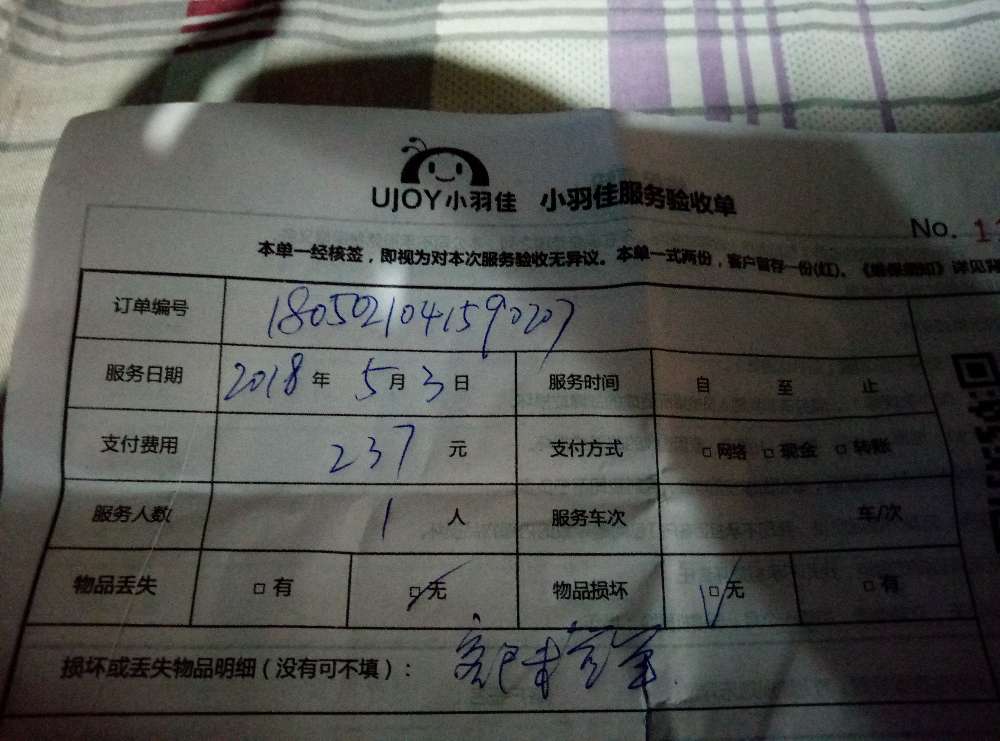 UJOY小羽佳 小羽佳服务验收单
No. 1
本单一经核签，即视为对本次服务验收无异议。本单一式两份，客户暂存一份(红)。
订单编号 1805021041590207
服务日期 2018年 5月 3日 服务时间 自 至 止
支付费用 237 元 支付方式 □网络 □现金 □转账
服务人数 1 人 服务车次 车/次
物品丢失 □有 □无 物品损坏 □无 □有
损坏或丢失物品明细（没有可不填）：